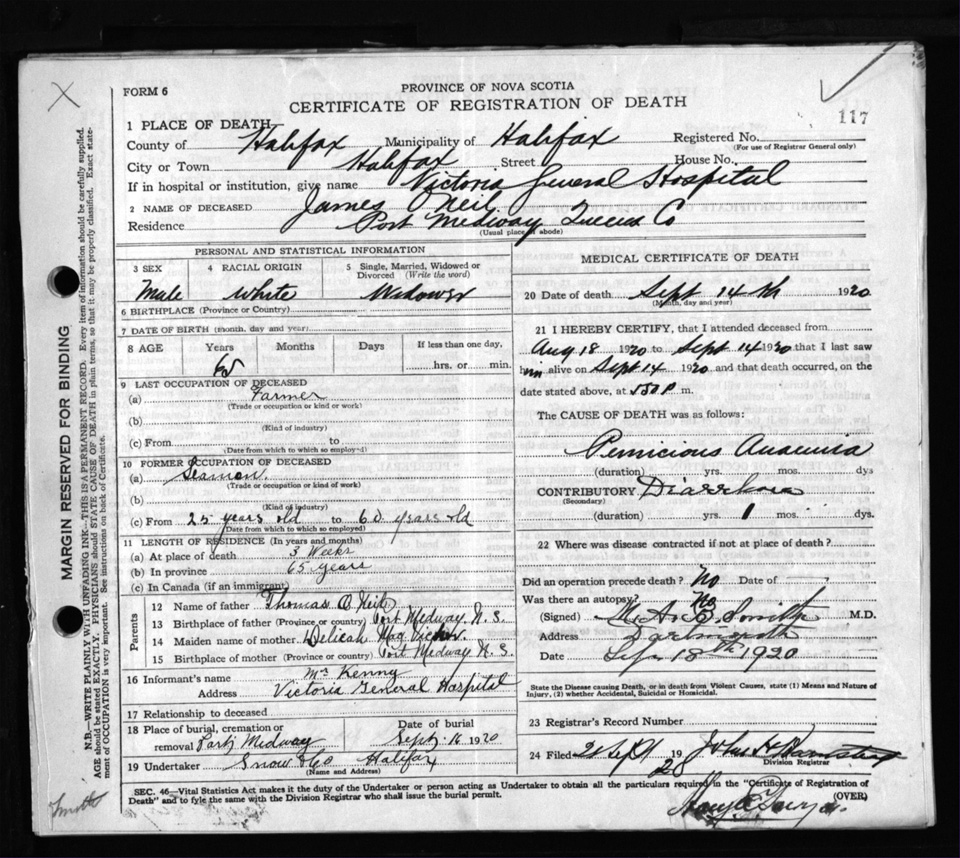 FORM 6
PROVINCE OF NOVA SCOTIA
CERTIFICATE OF REGISTRATION OF DEATH
117
1 PLACE OF DEATH—
County of Halifax Municipality of Halifax Registered No.
(For use of Registrar General only)
City or Town Halifax Street House No.
If in hospital or institution, give name Victoria General Hospital
2 NAME OF DECEASED James O'Neil
Residence Port Medway Queens Co
(Usual place of abode)
PERSONAL AND STATISTICAL INFORMATION
3 SEX 4 RACIAL ORIGIN 5 Single, Married, Widowed or Divorced (Write the word)
Male White Widower
6 BIRTHPLACE (Province or Country)
7 DATE OF BIRTH (month, day and year)
8 AGE Years Months Days If less than one day,
hrs. or min.
9 LAST OCCUPATION OF DECEASED
(a) Farmer
(Trade or occupation or kind or work)
(b)
(Kind of industry)
(c) From to
(Date from which to which employed)
10 FORMER OCCUPATION OF DECEASED
(a) Seaman
(Trade or occupation or kind of work)
(b)
(Kind of industry)
(c) From 25 years old to 60 years old
(Date from which to which employed)
11 LENGTH OF RESIDENCE (In years and months)
(a) At place of death 3 Weeks
(b) In province 65 years
(c) In Canada (if an immigrant)
Parents
12 Name of father Thomas O'Neil
13 Birthplace of father (Province or country) Port Medway N.S.
14 Maiden name of mother
15 Birthplace of mother (Province or country) Port Medway N.S.
16 Informant's name Mrs Kenny
Address Victoria General Hospital
17 Relationship to deceased
18 Place of burial, cremation or removal Port Medway
Date of burial
Sept. 16 1920
19 Undertaker Snow & Co Halifax
(Name and Address)
MEDICAL CERTIFICATE OF DEATH
20 Date of death Sept 14th 1920
(Month, day and year)
21 I HEREBY CERTIFY, that I attended deceased from
Aug 18 1920 to Sept 14 1920 that I last saw
him alive on Sept 14 1920 and that death occurred, on the
date stated above, at 550 P m.
The CAUSE OF DEATH was as follows:
Pernicious Anaemia
(duration) yrs. mos. dys
CONTRIBUTORY Diarrhoea
(Secondary)
(duration) yrs. 1 mos. dys.
22 Where was disease contracted if not at place of death?
Did an operation precede death? No Date of
Was there an autopsy? No
(Signed) Smith M.D.
Address Dartmouth
Date Sep 18th 1920
State the Disease causing Death, or in death from Violent Causes, state (1) Means and Nature of
Injury, (2) whether Accidental, Suicidal or Homicidal.
23 Registrar's Record Number
24 Filed 21 Sept 1920
Division Registrar
SEC. 46—Vital Statistics Act makes it the duty of the Undertaker or person acting as Undertaker to obtain all the particulars required in the "Certificate of Registration of
Death" and to fyle the same with the Division Registrar who shall issue the burial permit.
(OVER)
MARGIN RESERVED FOR BINDING
N.B.—WRITE PLAINLY WITH UNFADING INK—THIS IS A PERMANENT RECORD. Every item of information should be carefully supplied.
AGE should be stated EXACTLY. PHYSICIANS should STATE CAUSE OF DEATH in plain terms, so that it may be properly classified. Exact state-
ment of OCCUPATION is very important. See instructions on back of Certificate.